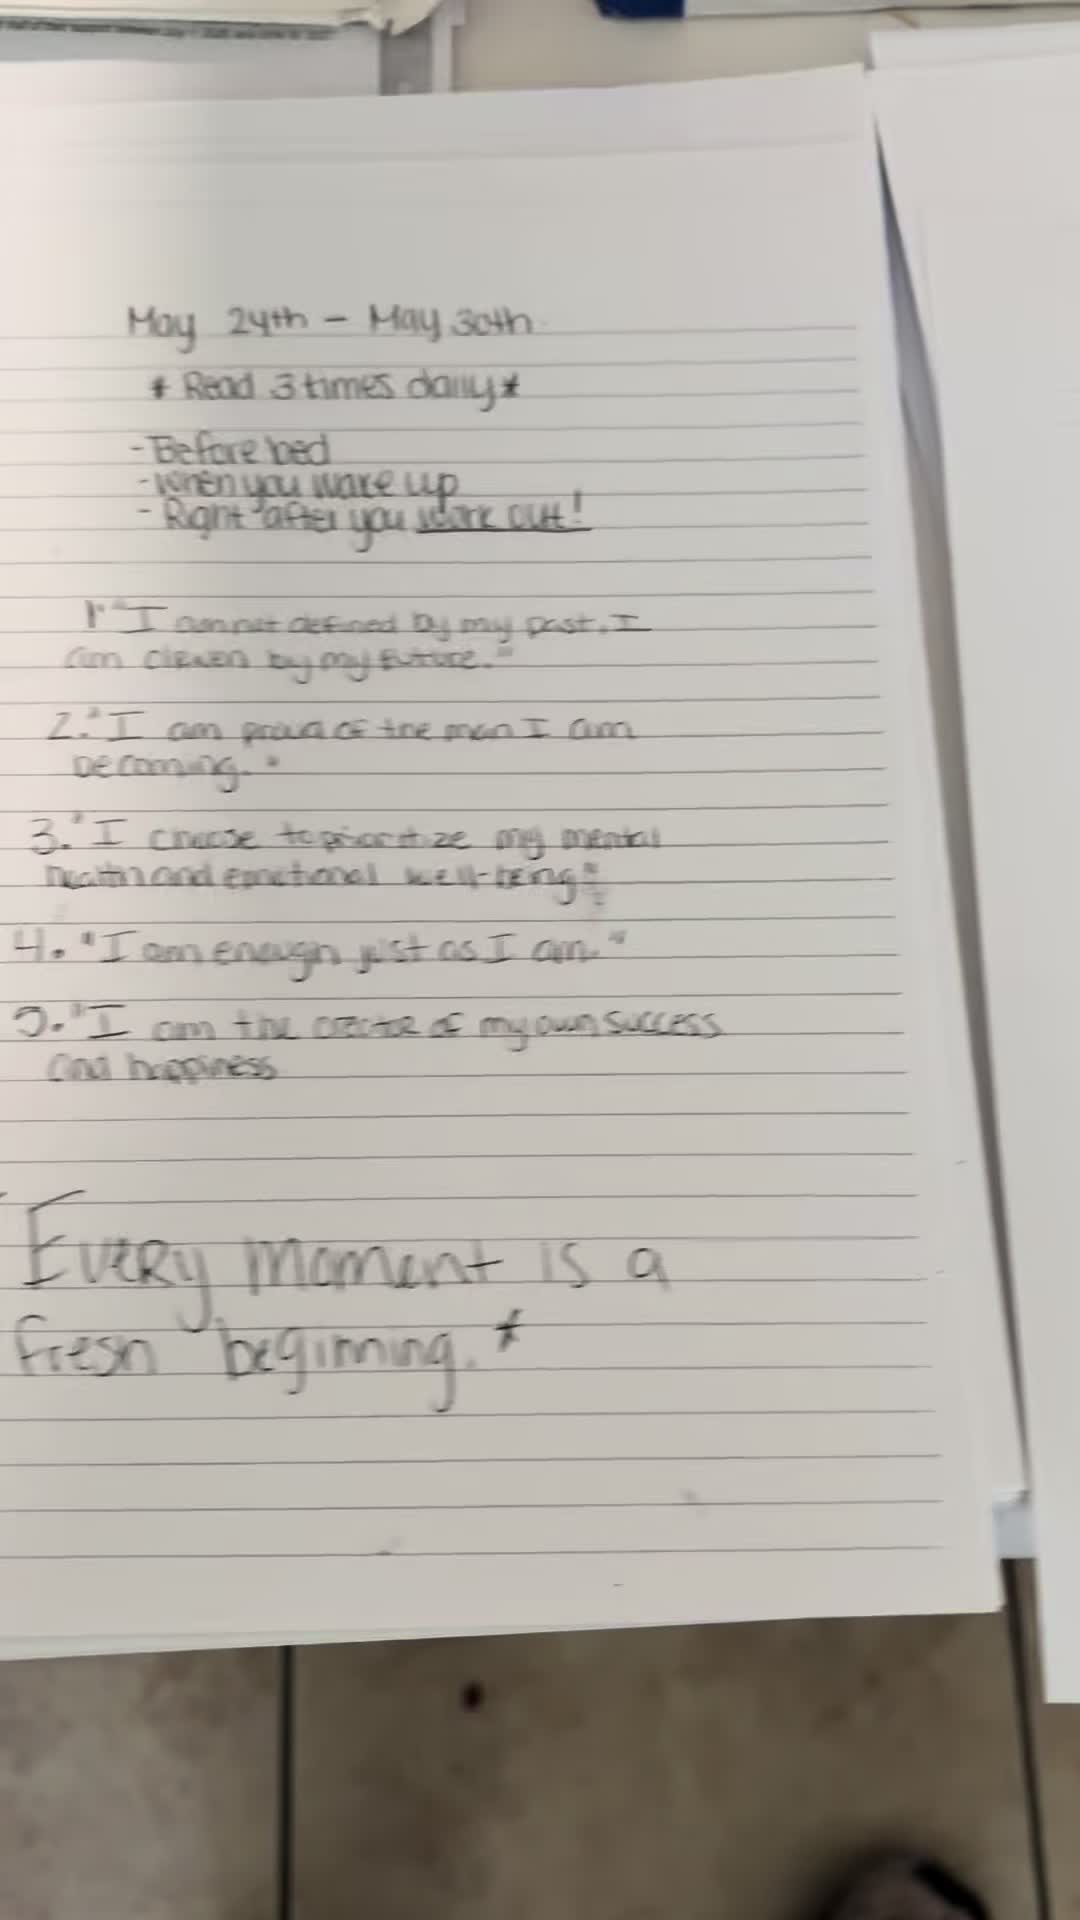 May 24th - May 30th
* Read 3 times daily *
- Before bed
- When you wake up
- Right after you work out!
1. "I am not defined by my past. I
am driven by my future."
2. "I am proud of the man I am
becoming."
3. "I choose to prioritize my mental
health and emotional well-being."
4. "I am enough just as I am."
5. "I am the creator of my own success
and happiness
Every moment is a
fresh beginning. *